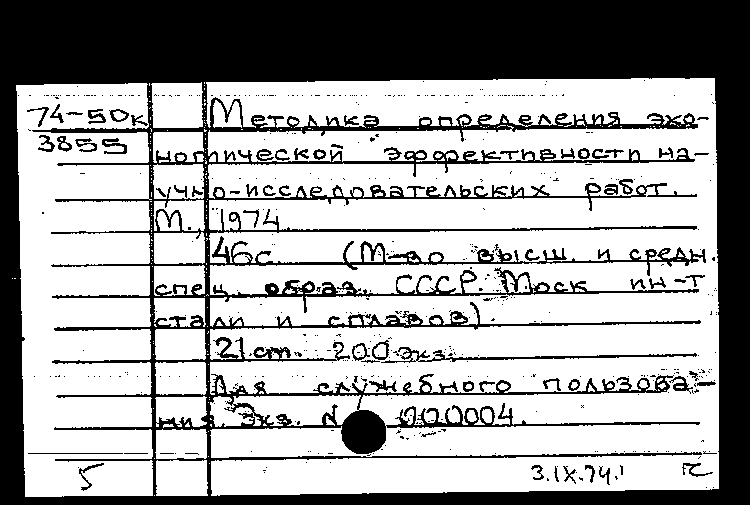 74-50к Методика определения эко-
3855
номической эффективности на-
учно-исследовательских работ.
М., 1974.
46с. (М-во высш. и средн.
спец. образ. СССР. Моск ин-т
стали и сплавов).
21 cm. 200 экз.
Для служебного пользова-
ния. Экз. N 000004.
5 3.IX.74.